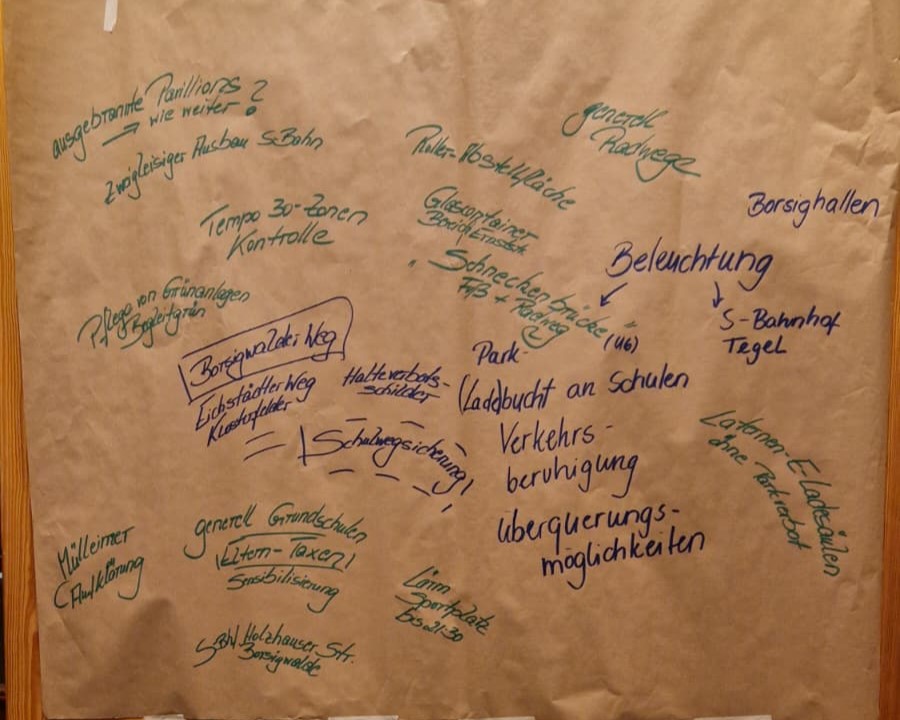 ausgebrannte Pavillions ?
→ wie weiter
zweigleisiger Ausbau S-Bahn
generell
Radwege
Roller-Abstellfläche
Borsighallen
Tempo 30-Zonen
Kontrolle
Glascontainer
Bereich Ernststr.
"Schneckenbrücke"
Fuß + Radweg
Beleuchtung
(U6)
S-Bahnhof
Tegel
Pflege von Grünanlagen
Begleitgrün
Borsigwalder Weg
Eichstädter Weg
Klosterfelder
Halteverbots-
schilder
Park-
(Lade)bucht an Schulen
Schulwegsicherung!
Verkehrs-
beruhigung
Laternen-E-Ladesäulen
ohne Parkverbot
überquerungs-
möglichkeiten
Mülleimer
(Aufklärung
generell Grundschulen
Eltern-Taxen!
Sensibilisierung
Lärm
Sportplatz
bis 21:30
Holzhauser Str.
Borsigwalde